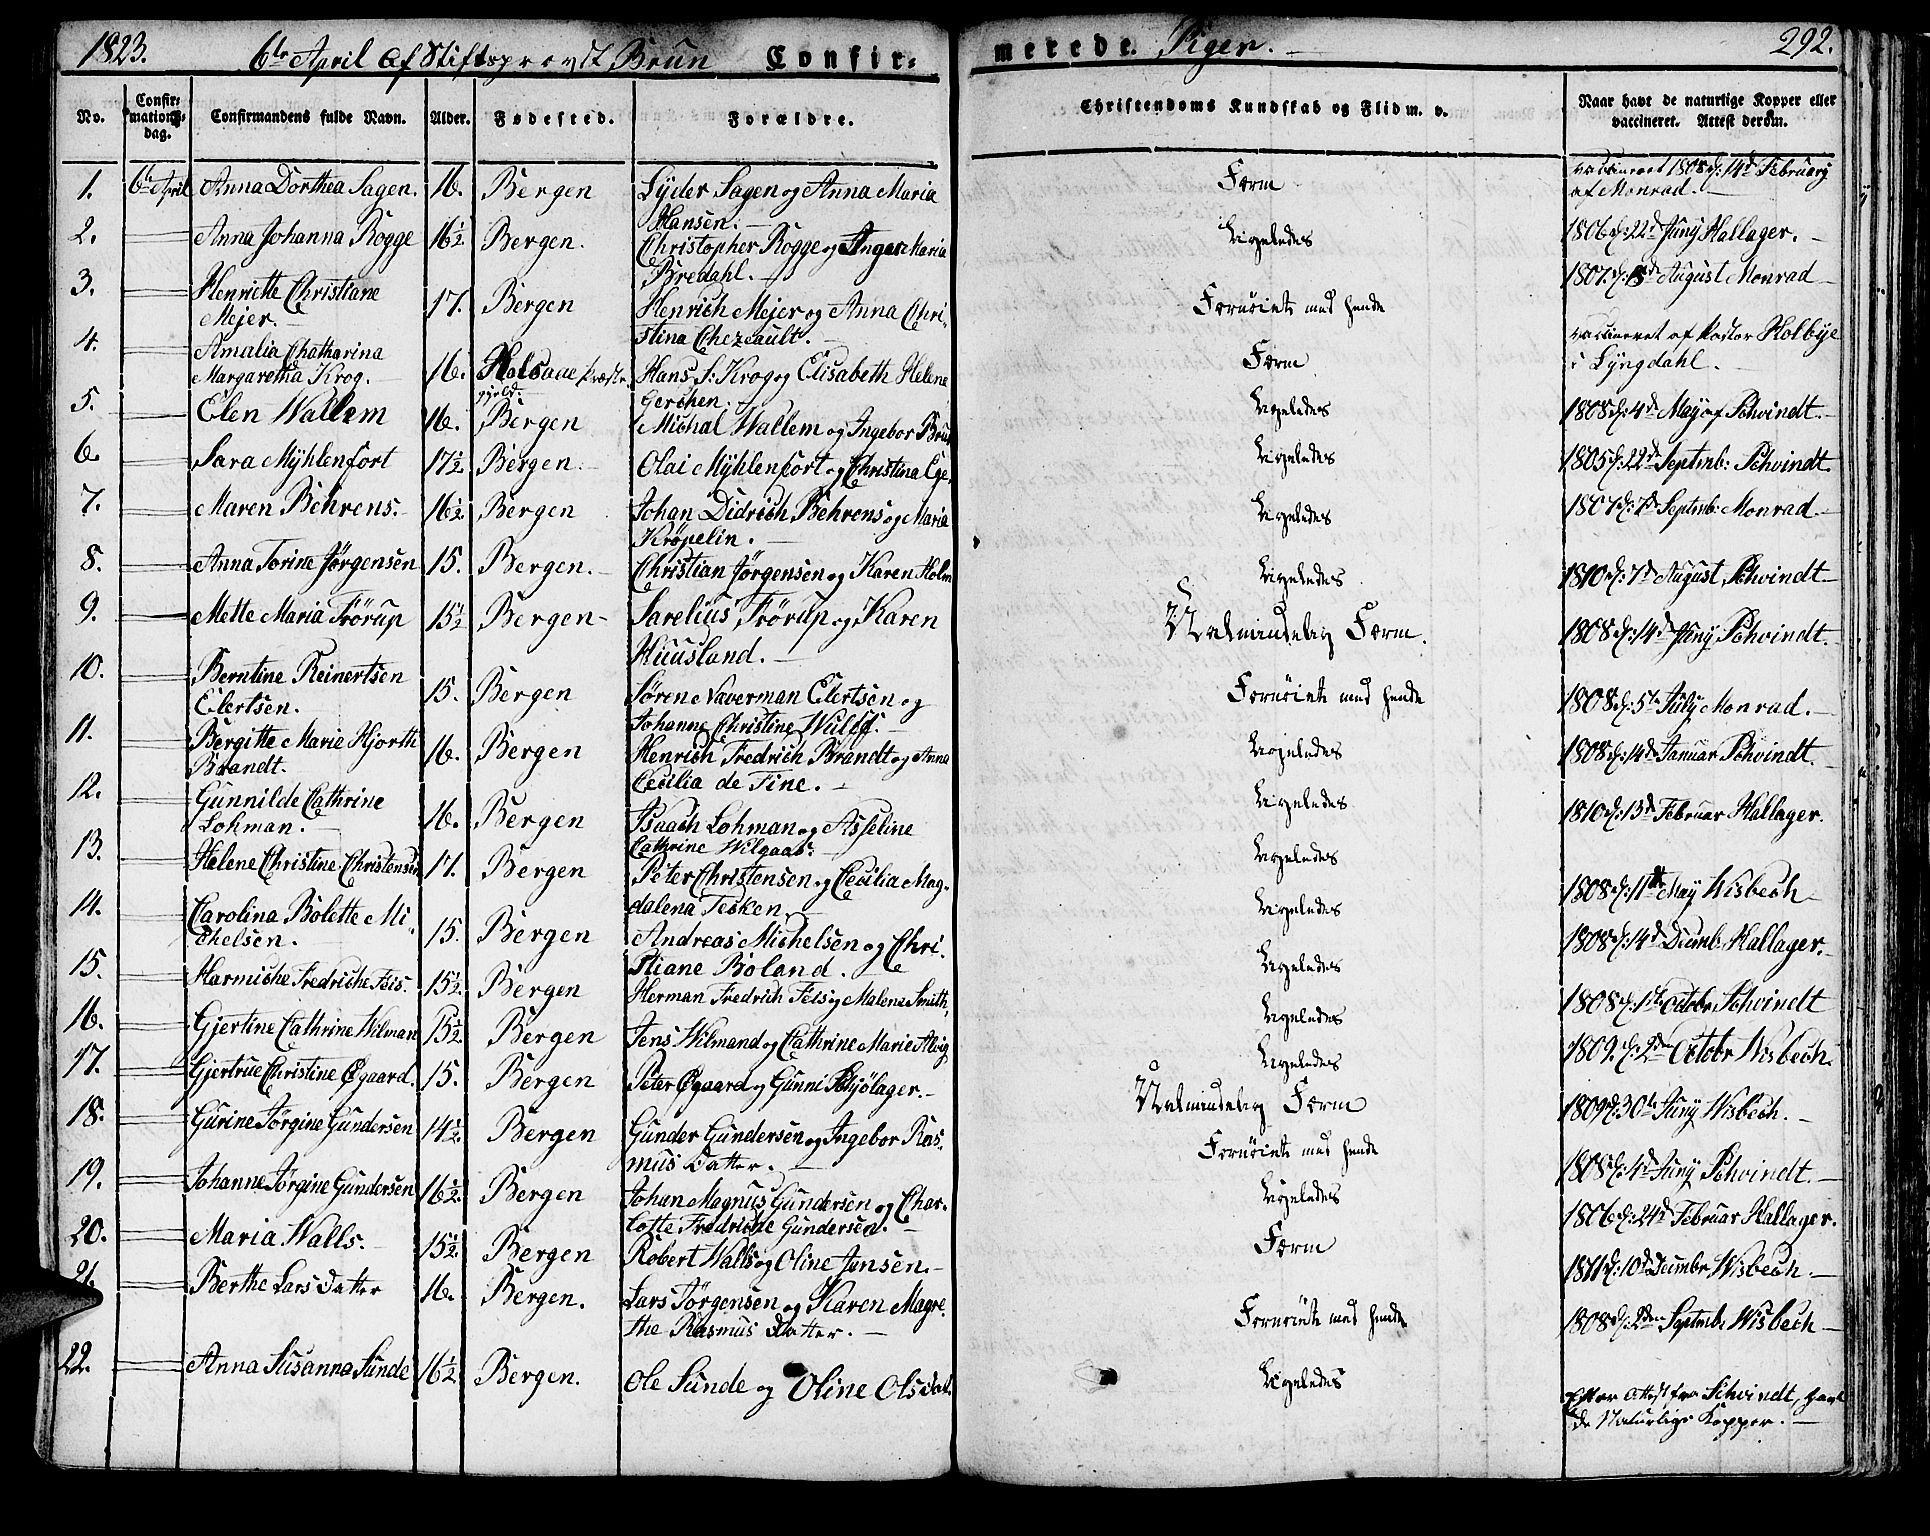 1823. 6te April af Stiftsprovst Brun Confir-
merede Piger. 292.
No. Confir- mations- dag. Confirmandens fulde Navn. Alder. Fødested. Forældre. Christendoms Kundskab og Flid m. v. Naar havt de naturlige Kopper eller vaccineret. Attest derom.
1. 6te April Anna Dorthea Sagen. 16. Bergen Lyder Sagen og Anna Maria
Hansen.
Færm
vaccineret 1808 d: 14d February
af Monrad.
2. Anna Johanna Rogge 16½ Bergen. Christopher Rogge og Anger Maria
Bredahl.
Ligeledes
1806 d: 22d Juny Hallager.
3. Henriette Christiane
Mejer. 17. Bergen Henrich Mejer og Anna Chri-
stina Chezeault.
Fornøiet med hende
1807. d: August Monrad
4. Amalia Chatharina
Margaretha Krog. 16. Holsaae Præste-
gjeld. Hans S: Krog og Elisabeth Helene
Gerchen.
Færm
vaccineret af Pastor Holbye
i Lyngdahl.
5. Elen Wallem 16. Bergen Michal Wallem og Ingebor Brun
Ligeledes
1808 d: 4d May af Schvindt.
6. Sara Mÿhlenfort 17½ Bergen. Olai Mÿhlenfort og Christina Ege.
Ligeledes
1805 d: 22de Septmb: Schvindt.
7. Maren Behrens. 16½ Bergen Johan Didrich Behrens og Maria
Krøpelin.
Ligeledes
1807 d: 7d Septmb: Monrad
8. Anna Torine Jørgensen 15. Bergen. Christian Jørgensen og Karen Holm
Ligeledes
1810 d: 7d August Schvindt
9. Mette Maria Frörup 15½ Bergen Sarelius Frörup og Karen
Huusland.
Ualmindelig Færm.
1808 d: 14d Juny Schvindt.
10. Berntine Reinertsen
Elertsen. 15. Bergen Sørene Naverman Elertsen og
Johanne Christine Wulff.
Fornøiet med hende
1808 d: 5te July Monrad.
11. Bergitte Marie Hjorth
Brandt. 16. Bergen Henrich Fredrich Brandt og Anna
Cecilia de Fine.
Ligeledes
1808 d: 14d Januar Schvindt.
12. Gunnilde Cathrine
Lohman. 16. Bergen Isaach Lohman og Asseline
Cathrine Wilgaas.
Ligeledes
1810 d: 13d Februar Hallager.
13. Helene Christine Christensen 17. Bergen Peter Christensen og Cecilia Mag-
dalena Tecken.
Ligeledes
1808 d: 11te May Wisbech
14. Carolina Bolette Mi-
chelsen. 15. Bergen Andreas Michelsen og Chri-
stiane Boland.
Ligeledes
1808 d: 14d Decmb: Hallager.
15. Harmiche Fredriche Feis. 15½. Bergen Herman Fredrich Feis og Malene Smith.
Ligeledes
1808 d: 1ste Octobr Schvindt
16. Gjertine Cathrine Wilman 15½. Bergen Jens Wilmand og Cathrine Marie Alvig
Ligeledes
1809. d: 2den Octobr Wisbech.
17. Gjertrue Christine Øgaard. 15. Bergen Peter Øgaard og Gunni Schjølager.
Ligeledes
1809 d: 30te Juny Wisbech.
18. Gurine Jørgine Gundersen 14½. Bergen Gunder Gundersen og Ingebor Ras-
mus Datter.
Ualmindelig Færm
1808 d: 4d Juny Schvindt.
19. Johanne Jørgine Gundersen 16½. Bergen Johan Magnus Gundersen og Char-
lotte Fredricke Gundersen.
Fornøiet med hende
Ligeledes
1806 d: 24d Februar Hallager.
20. Maria Walls. 15½. Bergen Robert Walls og Oline Jensen.
Færm
1811 d: 10d Decmbr Wisbech.
21. Berthe Lars Datter 16. Bergen. Lars Jørgensen og Karen Magre-
the Rasmus Datter.
Fornøiet med hende
1808 d: 2den Septmb: Wisbech
22. Anna Susanna Sunde 16½ Bergen. Ole Sunde og Oline Olsdat.
Ligeledes
Efter Attest fra Schvindt, havt
de Naturlige Kopper.